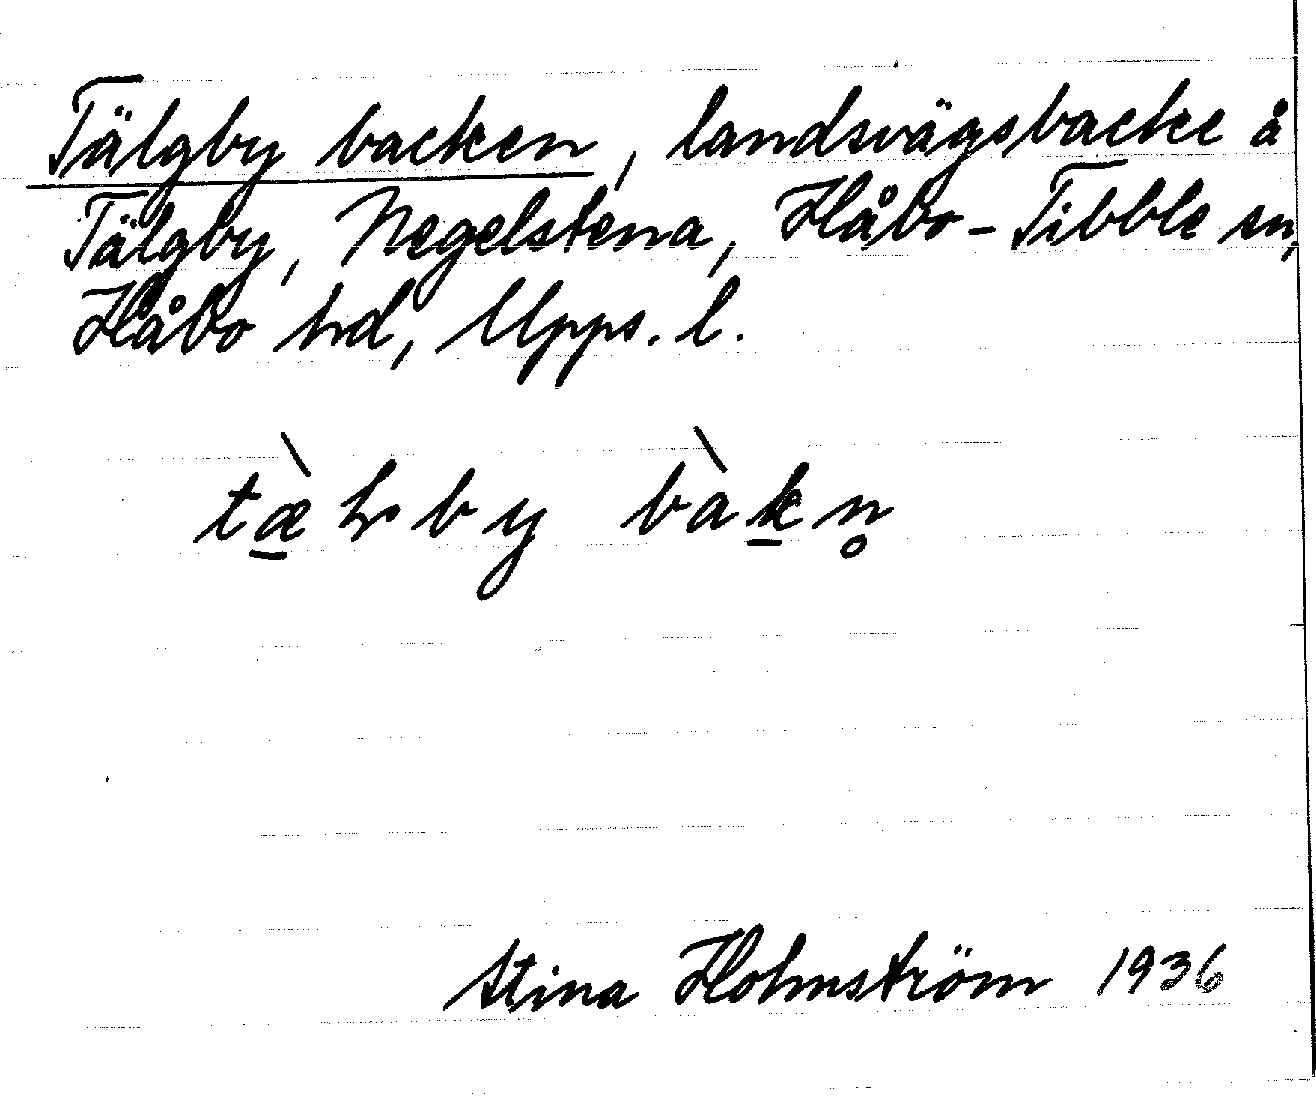 Tälgby backen, landsvägsbacke å
Tälgby, Negelstena, Håbo-Tibble sn,
Håbo hd, Upps. l.
bàkn̥
Stina Holmström 1936